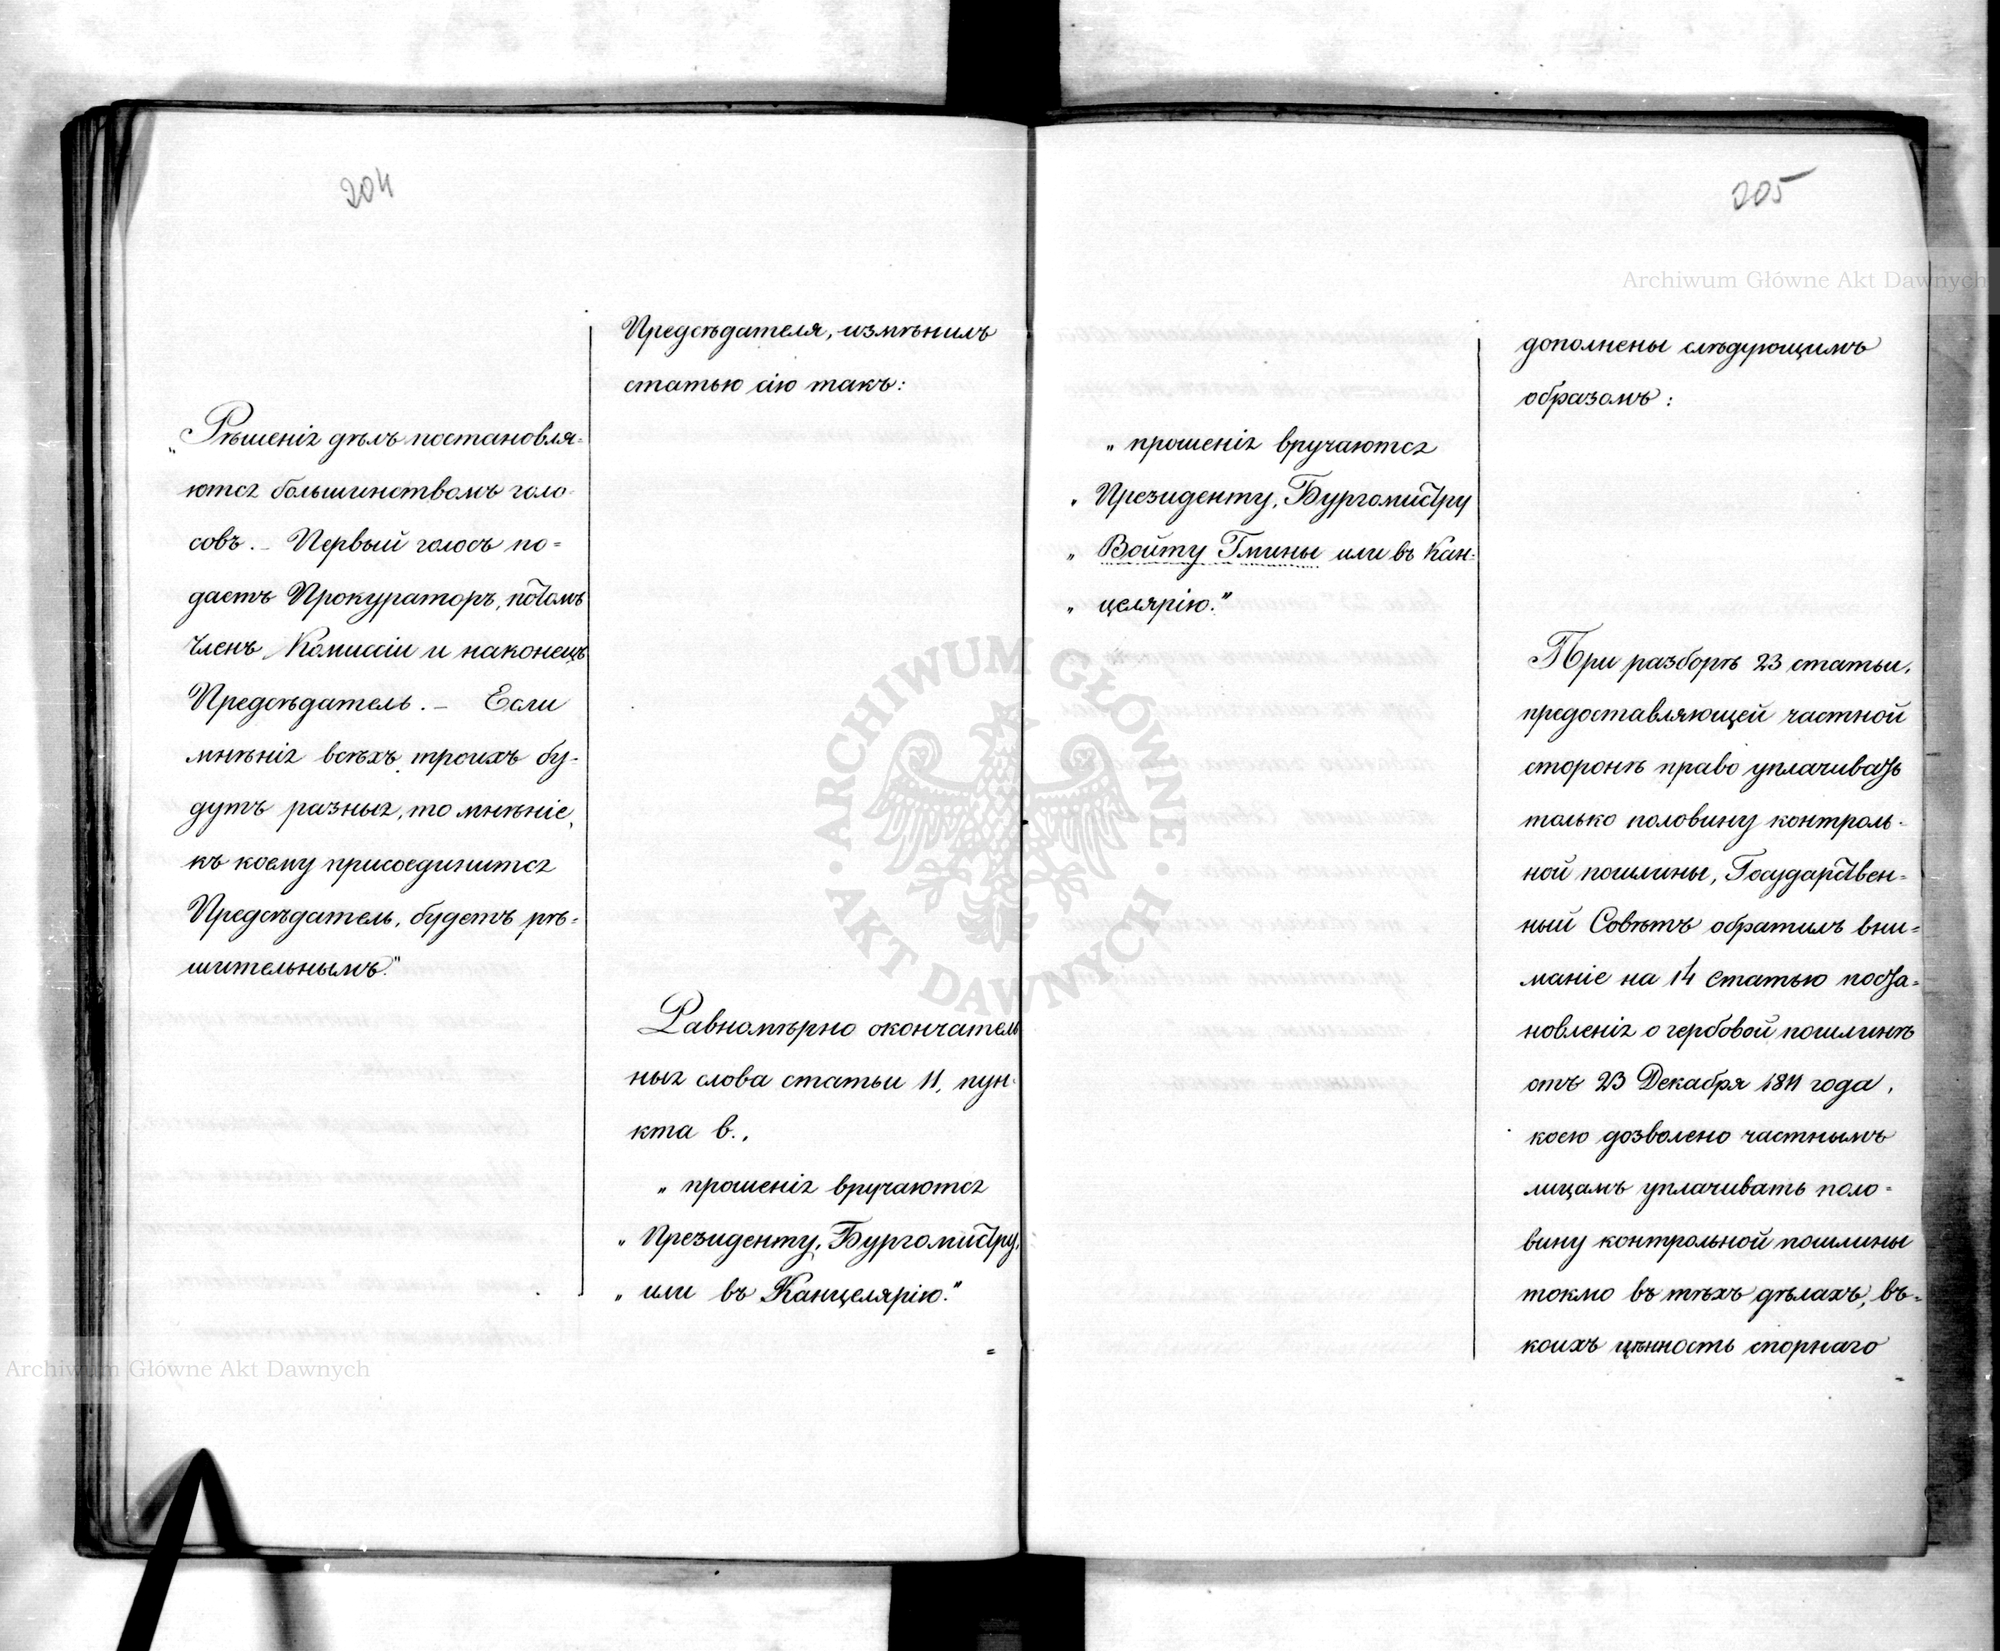 204
Предсѣдателя, измѣнилъ
статью сію такъ:
„Рѣшенія дѣлъ постановля-
ются большинствомъ голо-
совъ. — Первый голосъ по=
даетъ Прокураторъ, потомъ
Членъ Коммисіи и наконецъ
Предсѣдатель. — Если
мнѣнія всѣхъ троихъ бу-
дутъ разныя, то мнѣніе,
къ коему присоединится
Предсѣдатель, будетъ рѣ=
шительнымъ."
Равномѣрно окончатель
ныя слова статьи 11, пун-
кта в.,
„ прошенія вручаются
„ Президенту, Бургомистру,
„ или въ Канцелярію."
205
дополнены слѣдующимъ
образомъ:
„ прошенія вручаются
„ Президенту, Бургомистру
„ Войту Гмины или въ Кан-
„ целярію."
При разборѣ 23 статьи,
предоставляющей частной
сторонѣ право уплачивать
только половину контроль-
ной пошлины, Государствен=
ный Совѣтъ обратилъ вни=
маніе на 14 статью поста=
новленія о гербовой пошлинѣ
отъ 23 Декабря 1811 года,
коею дозволено частнымъ
лицамъ уплачивать поло=
вину контрольной пошлины
токмо въ тѣхъ дѣлахъ, въ=
коихъ цѣнность спорнаго
Archiwum Główne Akt Dawnych
ARCHIWUM GŁÓWNE · AKT DAWNYCH ·
Archiwum Główne Akt Dawnych